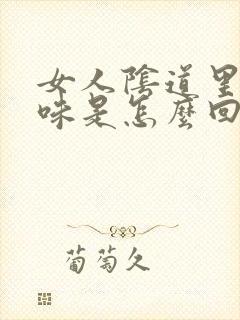 女人陰道里
味是怎麼回
葡萄久